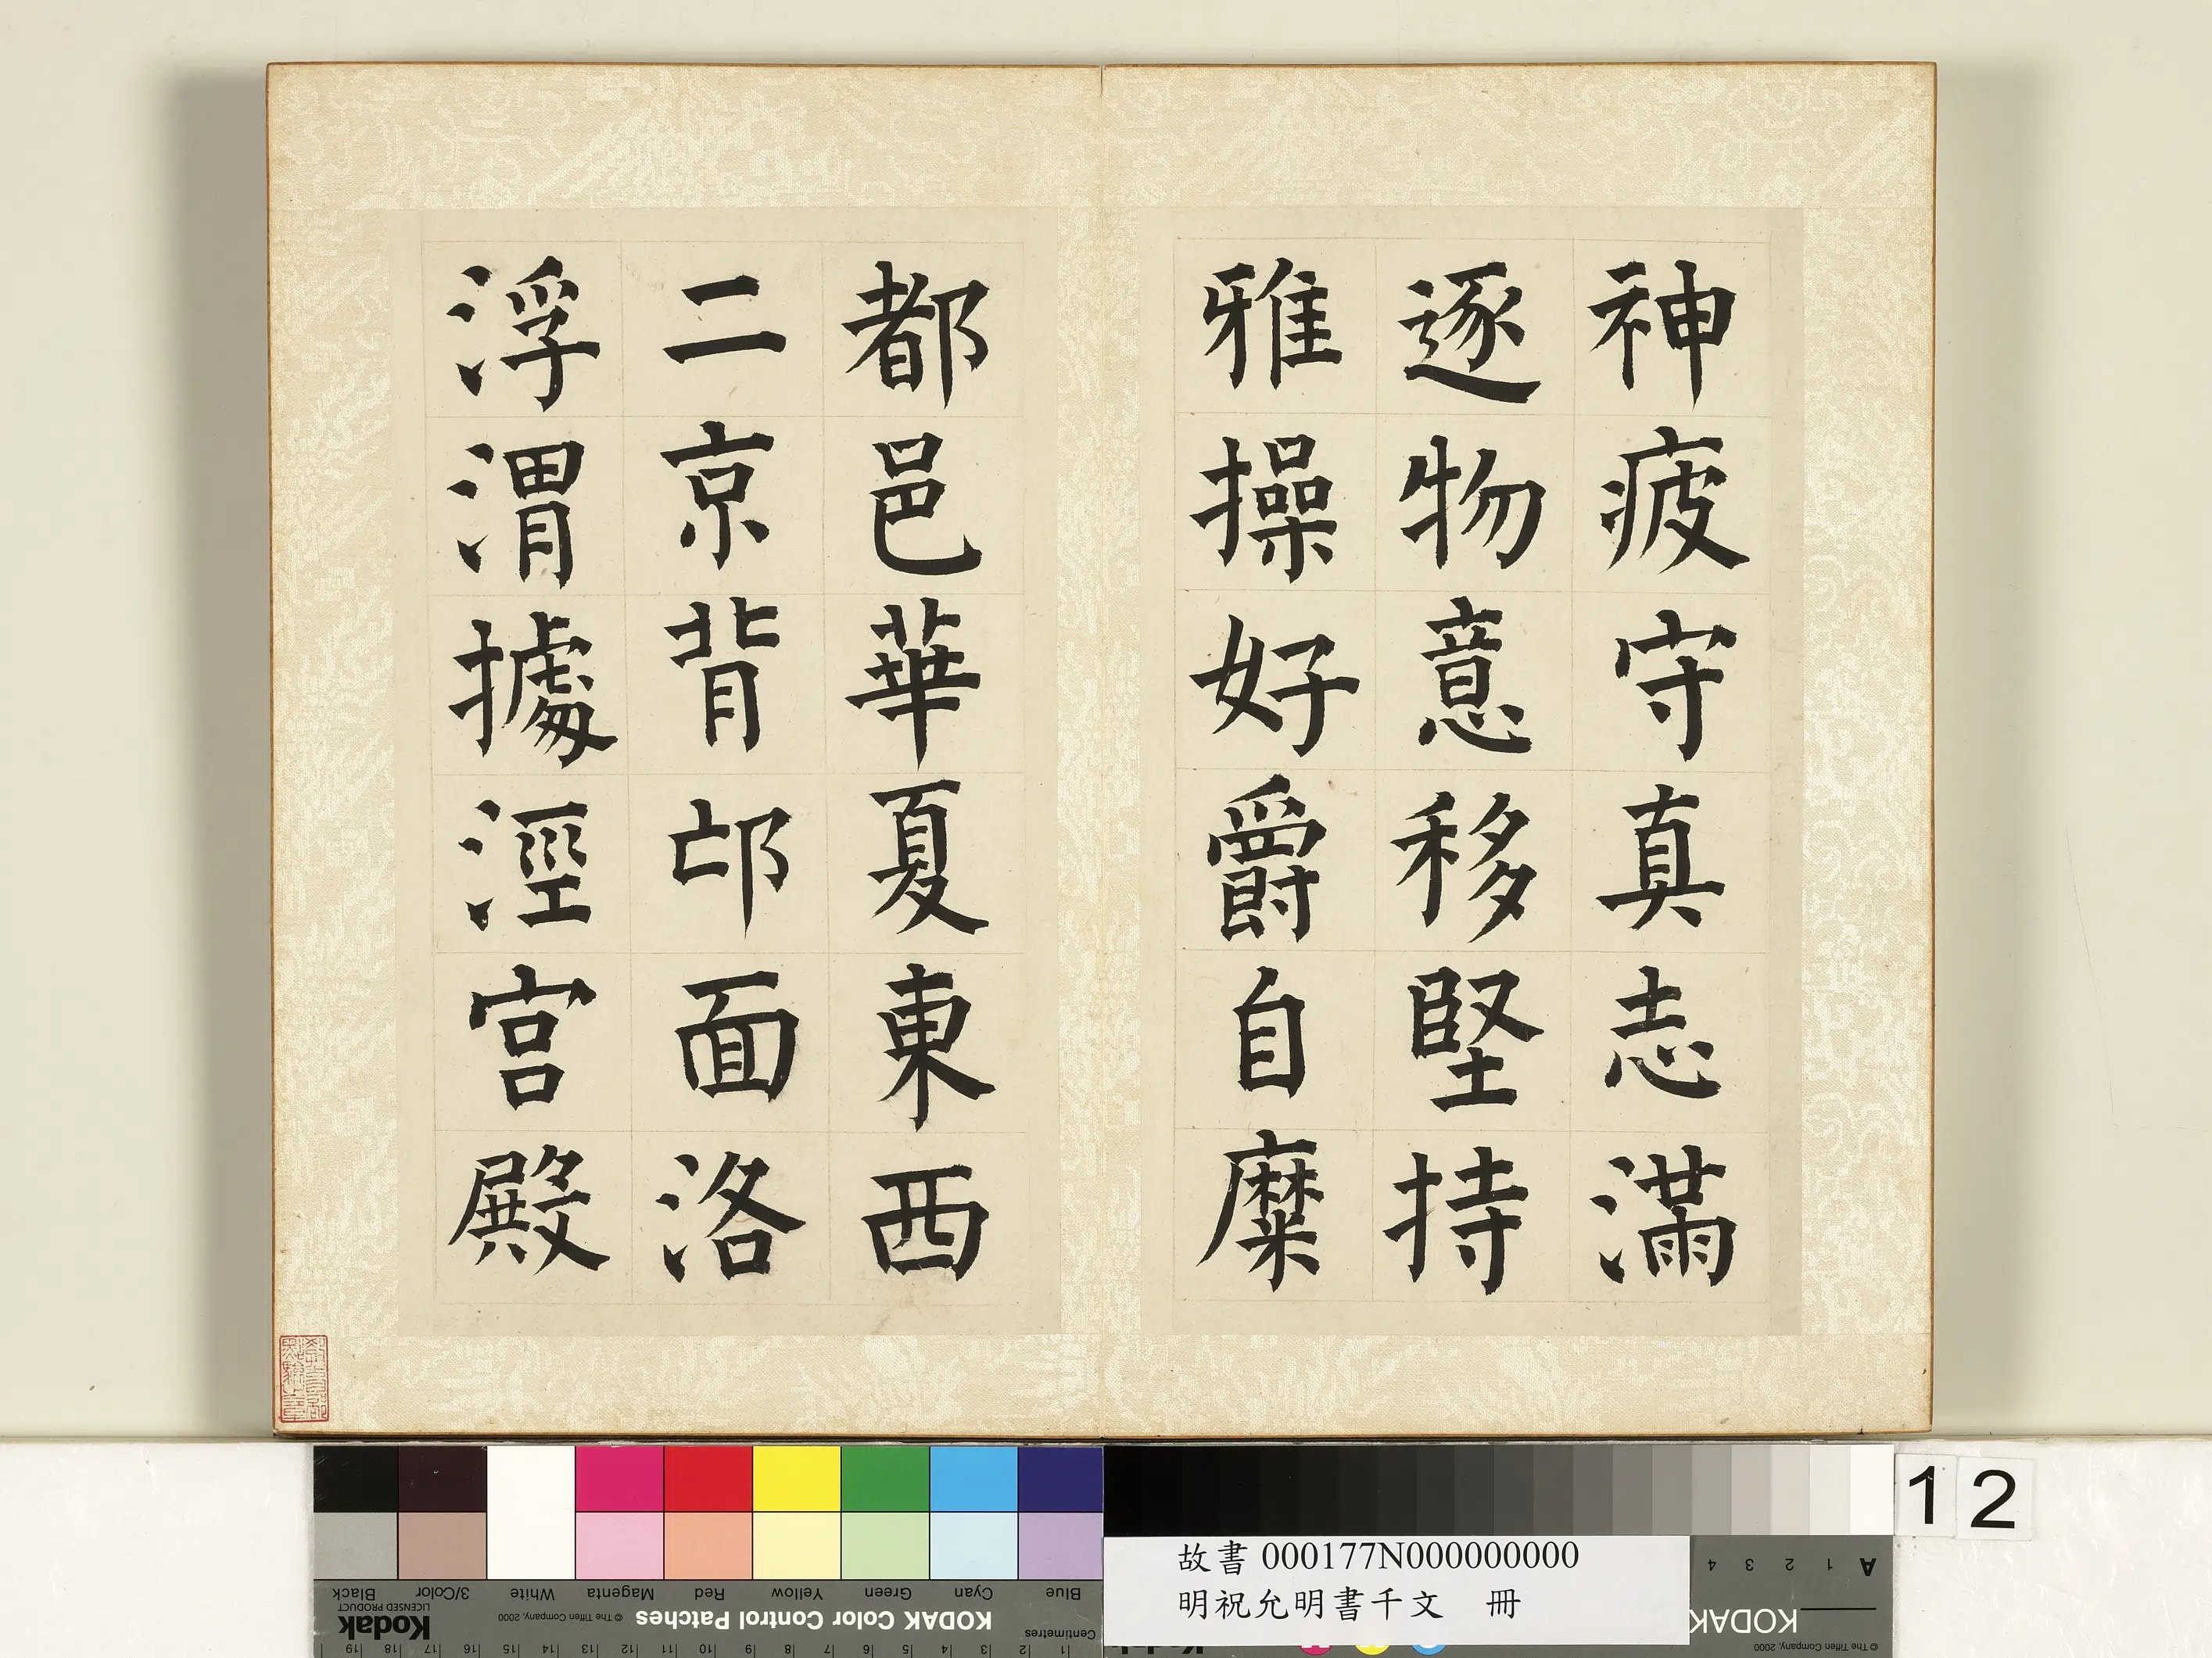 神疲守真志滿
逐物意移堅持
雅操好爵自糜
都邑華夏東西
二京背邙面洛
浮渭據涇宮殿
12
故書 000177N000000000
明祝允明書千文 冊
Blue Cyan Green Yellow Red Magenta White 3/Color Black
KODAK Color Control Patches
© The Tiffen Company, 2000
Kodak
LICENSED PRODUCT
Centimetres
1 2 3 4 5 6 7 8 9 10 11 12 13 14 15 16 17 18 19
A 1 2 3 4
KODAK
© The Tiffen Company, 2000